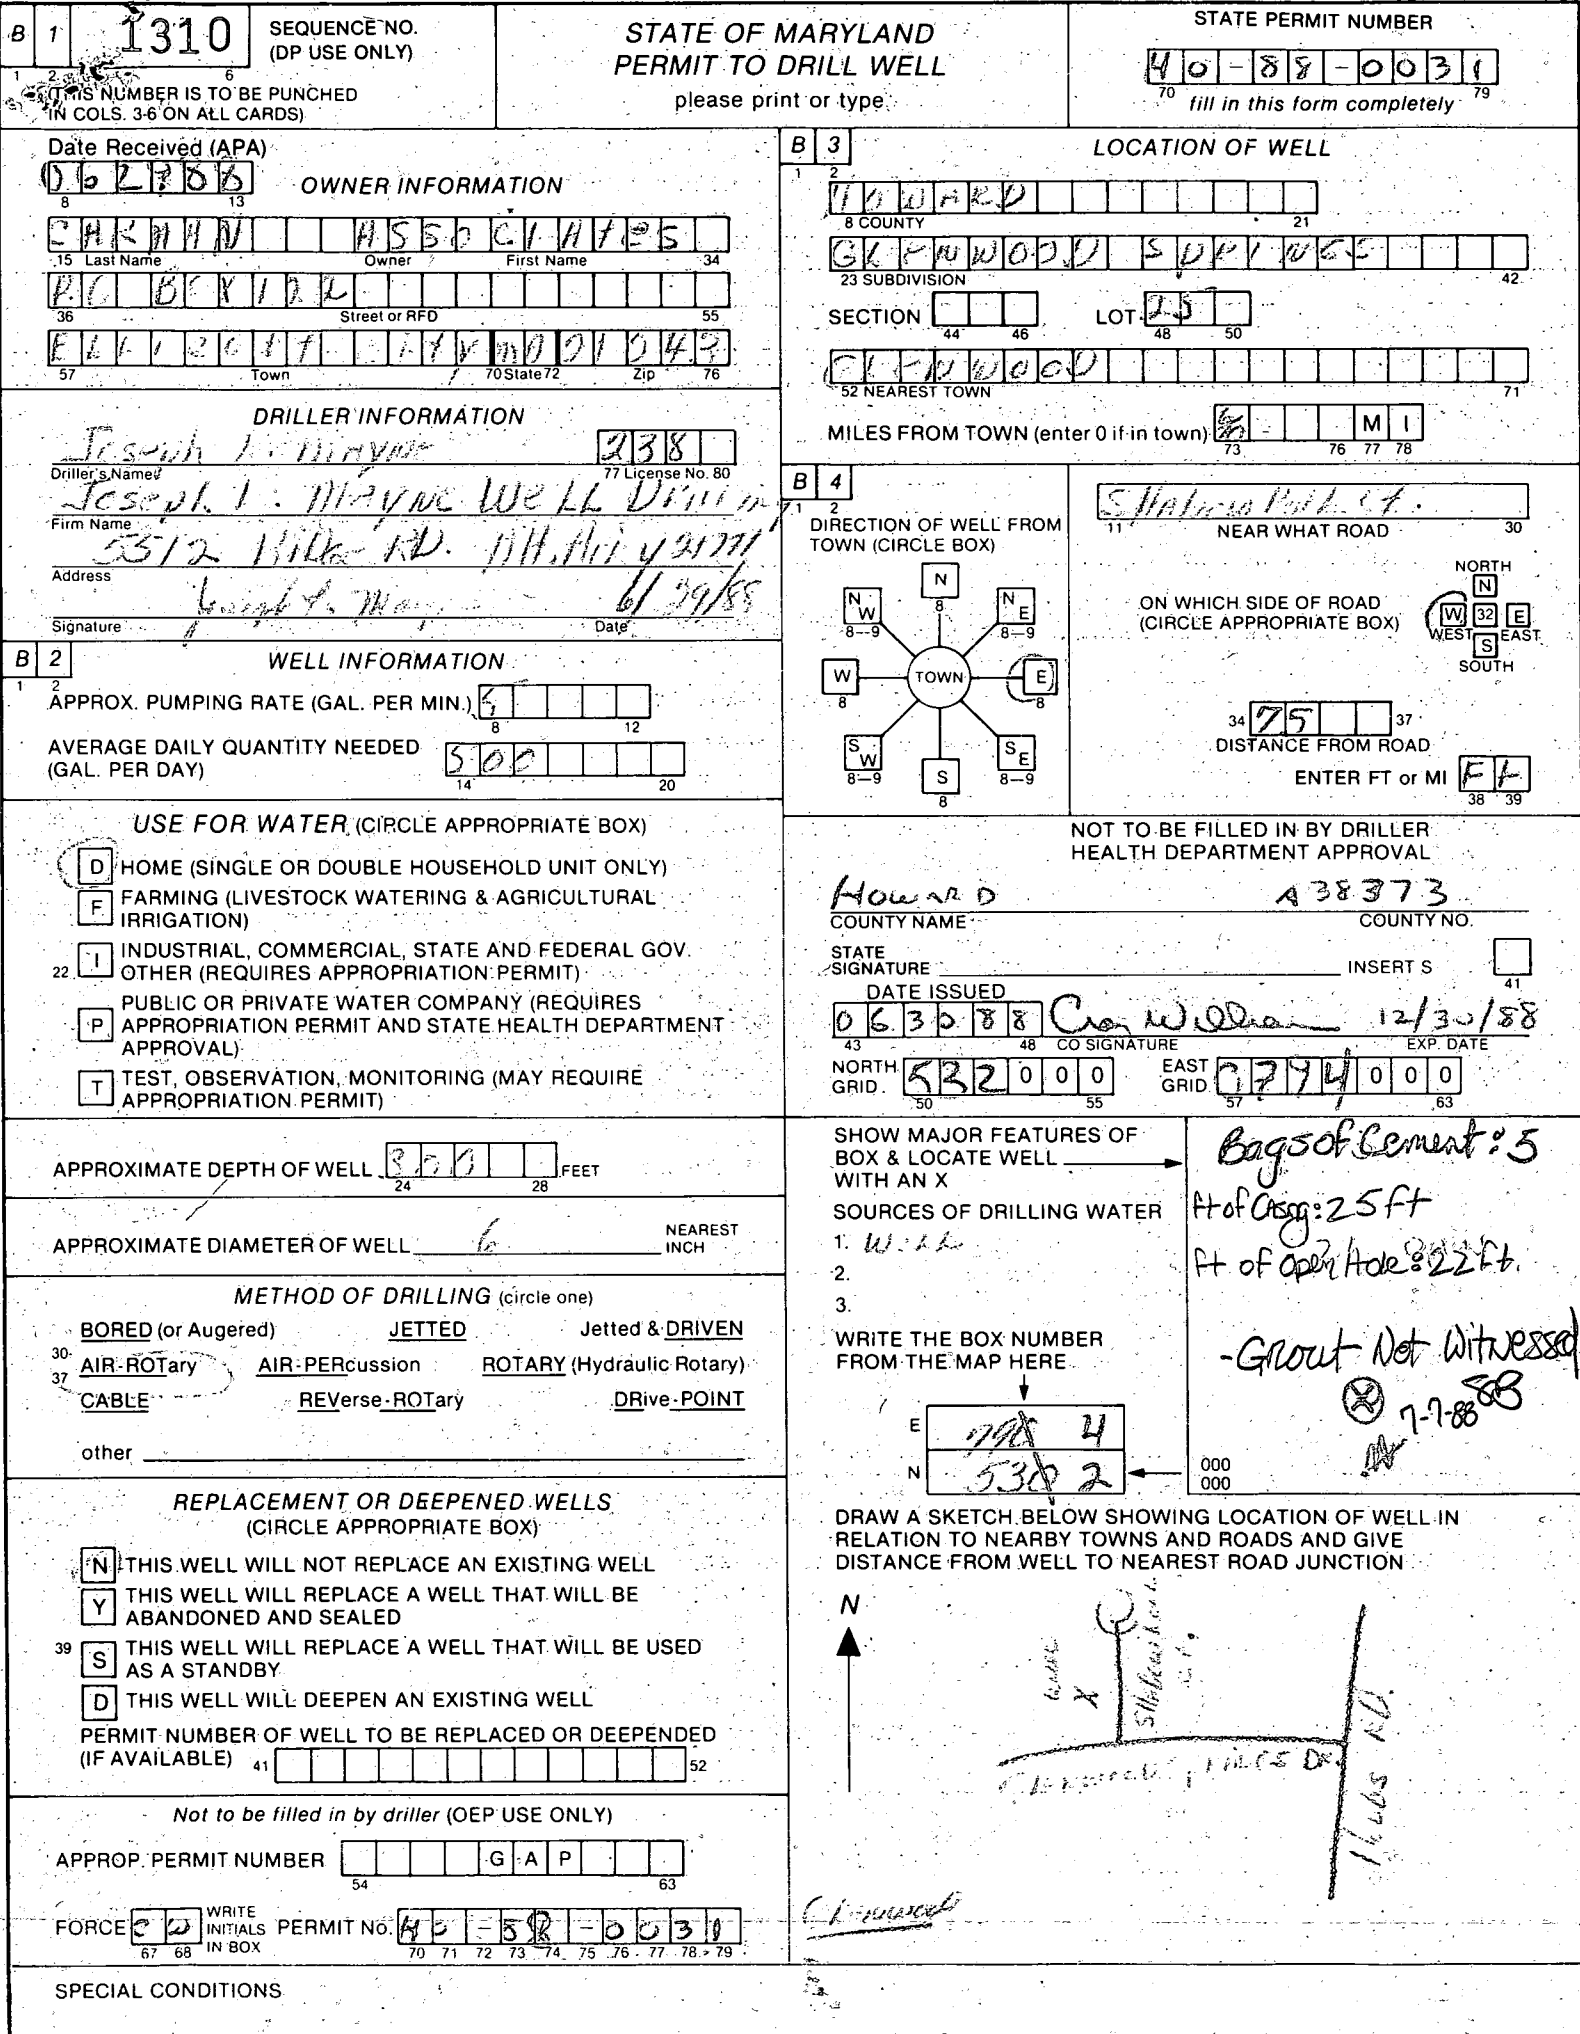 B 1 1310 SEQUENCE NO.
(DP USE ONLY)
1 2 6
(THIS NUMBER IS TO BE PUNCHED
IN COLS. 3-6 ON ALL CARDS)
STATE OF MARYLAND
PERMIT TO DRILL WELL
please print or type
STATE PERMIT NUMBER
40-88-0031
70 fill in this form completely 79
Date Received (APA)
062788
8 13
OWNER INFORMATION
ASSOCIATES
15 Last Name Owner First Name 34
36 Street or RFD 55
MD 21043
57 Town 70 State 72 Zip 76
DRILLER INFORMATION
Joseph L. Mayne 238
Driller's Name 77 License No. 80
Joseph L. Mayne Well Drilling
Firm Name
5512 RD. Mt. Airy 21771
Address
Joseph L. Mayne 6/29/88
Signature Date
B 2 WELL INFORMATION
1 2
APPROX. PUMPING RATE (GAL. PER MIN.) 5
8 12
AVERAGE DAILY QUANTITY NEEDED
(GAL. PER DAY) 500
14 20
USE FOR WATER (CIRCLE APPROPRIATE BOX)
D HOME (SINGLE OR DOUBLE HOUSEHOLD UNIT ONLY)
F FARMING (LIVESTOCK WATERING & AGRICULTURAL
IRRIGATION)
22 I INDUSTRIAL, COMMERCIAL, STATE AND FEDERAL GOV.
OTHER (REQUIRES APPROPRIATION PERMIT)
P PUBLIC OR PRIVATE WATER COMPANY (REQUIRES
APPROPRIATION PERMIT AND STATE HEALTH DEPARTMENT
APPROVAL)
T TEST, OBSERVATION, MONITORING (MAY REQUIRE
APPROPRIATION PERMIT)
APPROXIMATE DEPTH OF WELL 300 FEET
24 28
APPROXIMATE DIAMETER OF WELL 6 NEAREST
INCH
METHOD OF DRILLING (circle one)
BORED (or Augered) JETTED Jetted & DRIVEN
30 AIR-ROTary AIR-PERcussion ROTARY (Hydraulic Rotary)
37 CABLE REVerse-ROTary DRive-POINT
other
REPLACEMENT OR DEEPENED WELLS
(CIRCLE APPROPRIATE BOX)
N THIS WELL WILL NOT REPLACE AN EXISTING WELL
Y THIS WELL WILL REPLACE A WELL THAT WILL BE
ABANDONED AND SEALED
39 S THIS WELL WILL REPLACE A WELL THAT WILL BE USED
AS A STANDBY
D THIS WELL WILL DEEPEN AN EXISTING WELL
PERMIT NUMBER OF WELL TO BE REPLACED OR DEEPENDED
(IF AVAILABLE) 41 52
Not to be filled in by driller (OEP USE ONLY)
APPROP. PERMIT NUMBER GAP
54 63
FORCE CW WRITE
INITIALS
IN BOX PERMIT No. 40-88-0031
67 68 70 71 72 73 74 75 76 77 78 79
SPECIAL CONDITIONS
B 3 LOCATION OF WELL
1 2
HOWARD
8 COUNTY 21
GLENWOOD SPRINGS
23 SUBDIVISION 42
SECTION LOT 25
44 46 48 50
GLENWOOD
52 NEAREST TOWN 71
MILES FROM TOWN (enter 0 if in town) M I
73 76 77 78
B 4
1 2
DIRECTION OF WELL FROM
TOWN (CIRCLE BOX)
N
8
NW NE
8-9 8-9
W TOWN E
8 8
SW SE
8-9 8-9
S
8
Ct.
11 NEAR WHAT ROAD 30
ON WHICH SIDE OF ROAD
(CIRCLE APPROPRIATE BOX)
NORTH
N
W 32 E
WEST EAST
S
SOUTH
34 75 37
DISTANCE FROM ROAD
ENTER FT or MI Ft
38 39
NOT TO BE FILLED IN BY DRILLER
HEALTH DEPARTMENT APPROVAL
HOWARD A38373
COUNTY NAME COUNTY NO.
STATE
SIGNATURE INSERT S
41
DATE ISSUED
063088 12/30/88
43 48 CO SIGNATURE EXP. DATE
NORTH
GRID 532000
50 55
EAST
GRID 0794000
57 63
SHOW MAJOR FEATURES OF
BOX & LOCATE WELL
WITH AN X
SOURCES OF DRILLING WATER
1. Well
2.
3.
WRITE THE BOX NUMBER
FROM THE MAP HERE
E 4
N 2
Bags of Cement: 5
ft of Casing: 25 ft
ft of open Hole: 22 ft.
-Grout Not Witnessed
7-7-88
000
000
DRAW A SKETCH BELOW SHOWING LOCATION OF WELL IN
RELATION TO NEARBY TOWNS AND ROADS AND GIVE
DISTANCE FROM WELL TO NEAREST ROAD JUNCTION
N
X
Ct.
Dr.
RD.
Glenwood